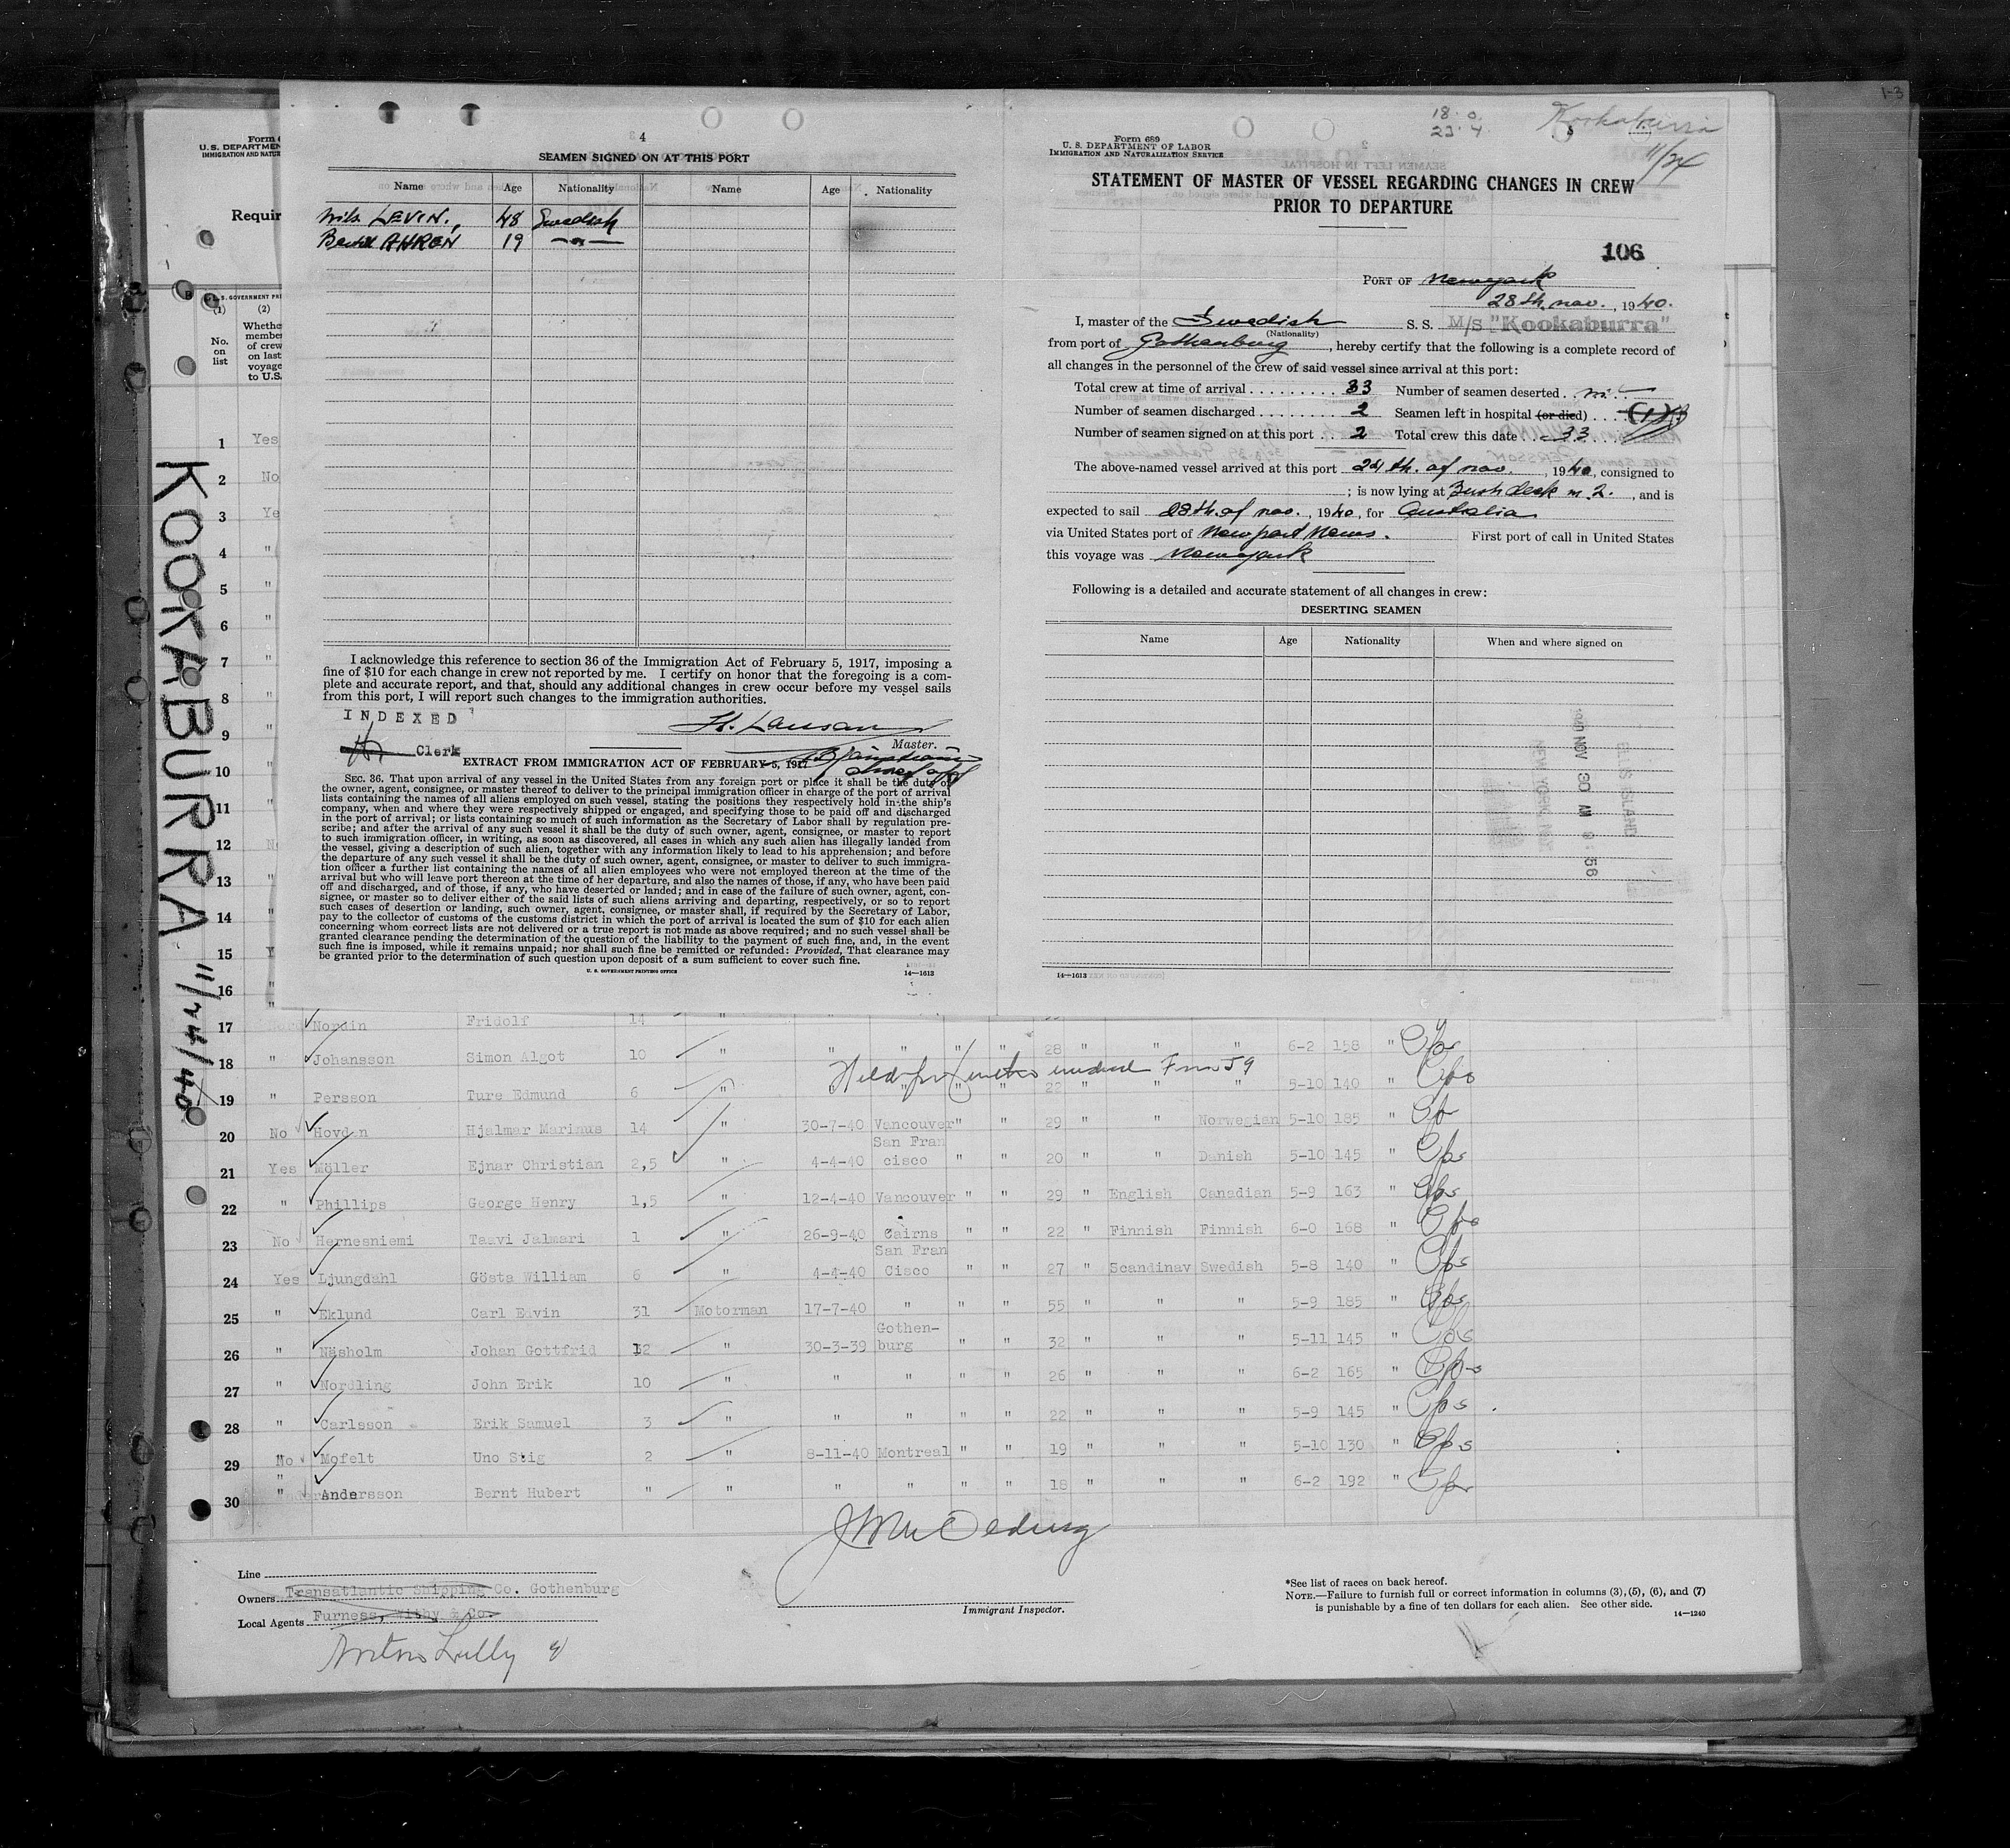 1-3
Form
U. S. DEPARTMEN
IMMIGRATION AND NATUR
Requir
U. S. GOVERNMENT PRI
(1) (2)
No. on list
Whethe
member
of crew
on last
voyage
to U.S.
KOOKABURRA 11/24/40
4
SEAMEN SIGNED ON AT THIS PORT
Name Age Nationality Name Age Nationality
Nils LEVIN, 48 Swedish
Bertil AHREN 19 —"—
I acknowledge this reference to section 36 of the Immigration Act of February 5, 1917, imposing a
fine of $10 for each change in crew not reported by me. I certify on honor that the foregoing is a com-
plete and accurate report, and that, should any additional changes in crew occur before my vessel sails
from this port, I will report such changes to the immigration authorities.
INDEXED
Clerk
Master.
EXTRACT FROM IMMIGRATION ACT OF FEBRUARY 5, 1917
SEC. 36. That upon arrival of any vessel in the United States from any foreign port or place it shall be the duty of
the owner, agent, consignee, or master thereof to deliver to the principal immigration officer in charge of the port of arrival
lists containing the names of all aliens employed on such vessel, stating the positions they respectively hold in the ship's
company, when and where they were respectively shipped or engaged, and specifying those to be paid off and discharged
in the port of arrival; or lists containing so much of such information as the Secretary of Labor shall by regulation pre-
scribe; and after the arrival of any such vessel it shall be the duty of such owner, agent, consignee, or master to report
to such immigration officer, in writing, as soon as discovered, all cases in which any such alien has illegally landed from
the vessel, giving a description of such alien, together with any information likely to lead to his apprehension; and before
the departure of any such vessel it shall be the duty of such owner, agent, consignee, or master to deliver to such immigra-
tion officer a further list containing the names of all alien employees who were not employed thereon at the time of the
arrival but who will leave port thereon at the time of her departure, and also the names of those, if any, who have been paid
off and discharged, and of those, if any, who have deserted or landed; and in case of the failure of such owner, agent, con-
signee, or master so to deliver either of the said lists of such aliens arriving and departing, respectively, or so to report
such cases of desertion or landing, such owner, agent, consignee, or master shall, if required by the Secretary of Labor,
pay to the collector of customs of the customs district in which the port of arrival is located the sum of $10 for each alien
concerning whom correct lists are not delivered or a true report is not made as above required; and no such vessel shall be
granted clearance pending the determination of the question of the liability to the payment of such fine, and, in the event
such fine is imposed, while it remains unpaid; nor shall such fine be remitted or refunded: Provided, That clearance may
be granted prior to the determination of such question upon deposit of a sum sufficient to cover such fine.
U. S. GOVERNMENT PRINTING OFFICE 14—1613
18. 0.
23. 4.
Kookaburra
11/24
Form 689
U. S. DEPARTMENT OF LABOR
IMMIGRATION AND NATURALIZATION SERVICE
STATEMENT OF MASTER OF VESSEL REGARDING CHANGES IN CREW
PRIOR TO DEPARTURE
106
PORT OF Newyork
28th nov., 1940.
I, master of the Swedish S. S. M/S "Kookaburra"
(Nationality)
from port of Gothenburg, hereby certify that the following is a complete record of
all changes in the personnel of the crew of said vessel since arrival at this port:
Total crew at time of arrival 33 Number of seamen deserted
Number of seamen discharged 2 Seamen left in hospital (or died)
Number of seamen signed on at this port 2 Total crew this date 33
The above-named vessel arrived at this port 24th. of nov., 1940, consigned to
; is now lying at Bush dock n. 2., and is
expected to sail 28th. of nov., 1940, for Australia
via United States port of Newport News. First port of call in United States
this voyage was Newyork
Following is a detailed and accurate statement of all changes in crew:
DESERTING SEAMEN
Name Age Nationality When and where signed on
1940 NOV 30 AM 8:56
ELLIS ISLAND
14—1613
1 Yes
2 No
3 Ye
4 "
5 "
6 "
7 "
8 "
9 "
10 "
11 "
12 N
13 "
14 "
15 Y
16 "
17 Nordin Fridolf 14 "
18 " Johansson Simon Algot 10 " " " " " 28 " " " 6-2 158 "
19 " Persson Ture Edmund 6 " " " " " 22 " " " 5-10 140 "
20 No Hovden Hjalmar Marinus 14 " 30-7-40 Vancouver " " 29 " " Norwegian 5-10 185 "
21 Yes Möller Ejnar Christian 2,5 " 4-4-40 San Fran cisco " " 20 " " Danish 5-10 145 "
22 " Phillips George Henry 1,5 " 12-4-40 Vancouver " " 29 " English Canadian 5-9 163 "
23 No Hernesniemi Taavi Jalmari 1 " 26-9-40 Cairns " " 22 " Finnish Finnish 6-0 168 "
24 Yes Ljungdahl Gösta William 6 " 4-4-40 San Fran Cisco " " 27 " Scandinav Swedish 5-8 140 "
25 " Eklund Carl Edvin 31 Motorman 17-7-40 " " " 55 " " " 5-9 185 "
26 " Näsholm Johan Gottfrid 12 " 30-3-39 Gothen-burg " " 32 " " " 5-11 145 "
27 " Nordling John Erik 10 " " " " " 26 " " " 6-2 165 "
28 " Carlsson Erik Samuel 3 " " " " " 22 " " " 5-9 145 "
29 No Mofelt Uno Stig 2 " 8-11-40 Montreal " " 19 " " " 5-10 130 "
30 " Andersson Bernt Hubert " " " " " " 18 " " " 6-2 192 "
Line
Owners Transatlantic Shipping Co. Gothenburg
Local Agents Furness, Withy & Co.
Immigrant Inspector.
*See list of races on back hereof.
NOTE.—Failure to furnish full or correct information in columns (3), (5), (6), and (7)
is punishable by a fine of ten dollars for each alien. See other side.
14—1240